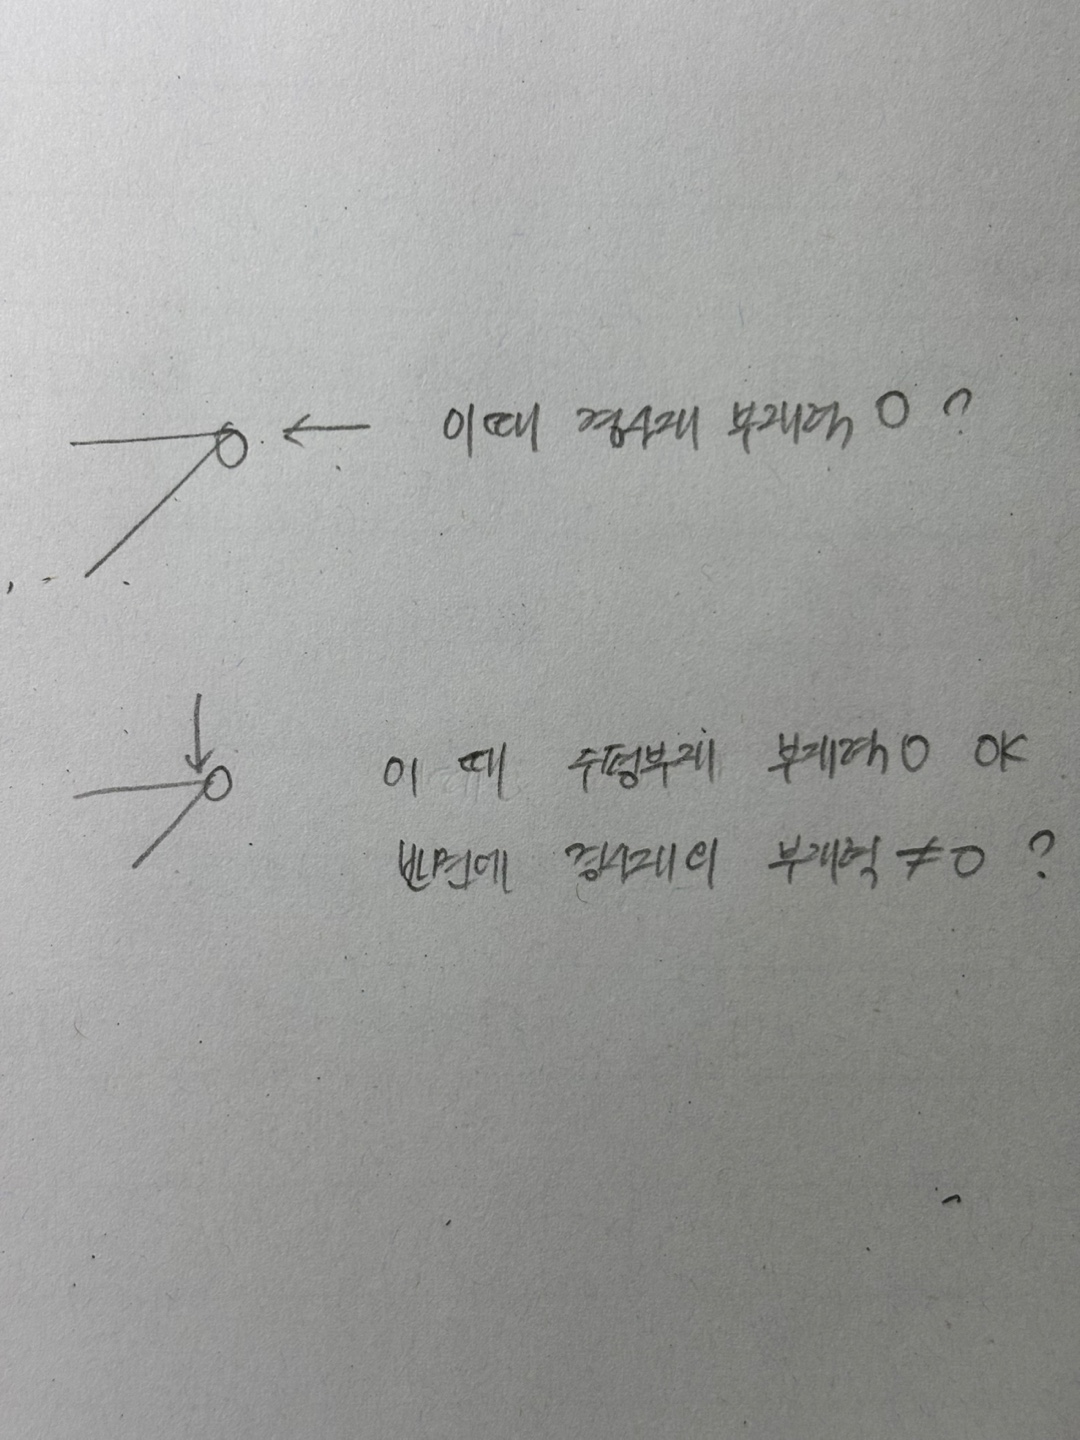 이때 경사재 부재력 0 ?
이 때 수평부재 부재력 0 OK
반면에 경사재의 부재력 ≠ 0 ?